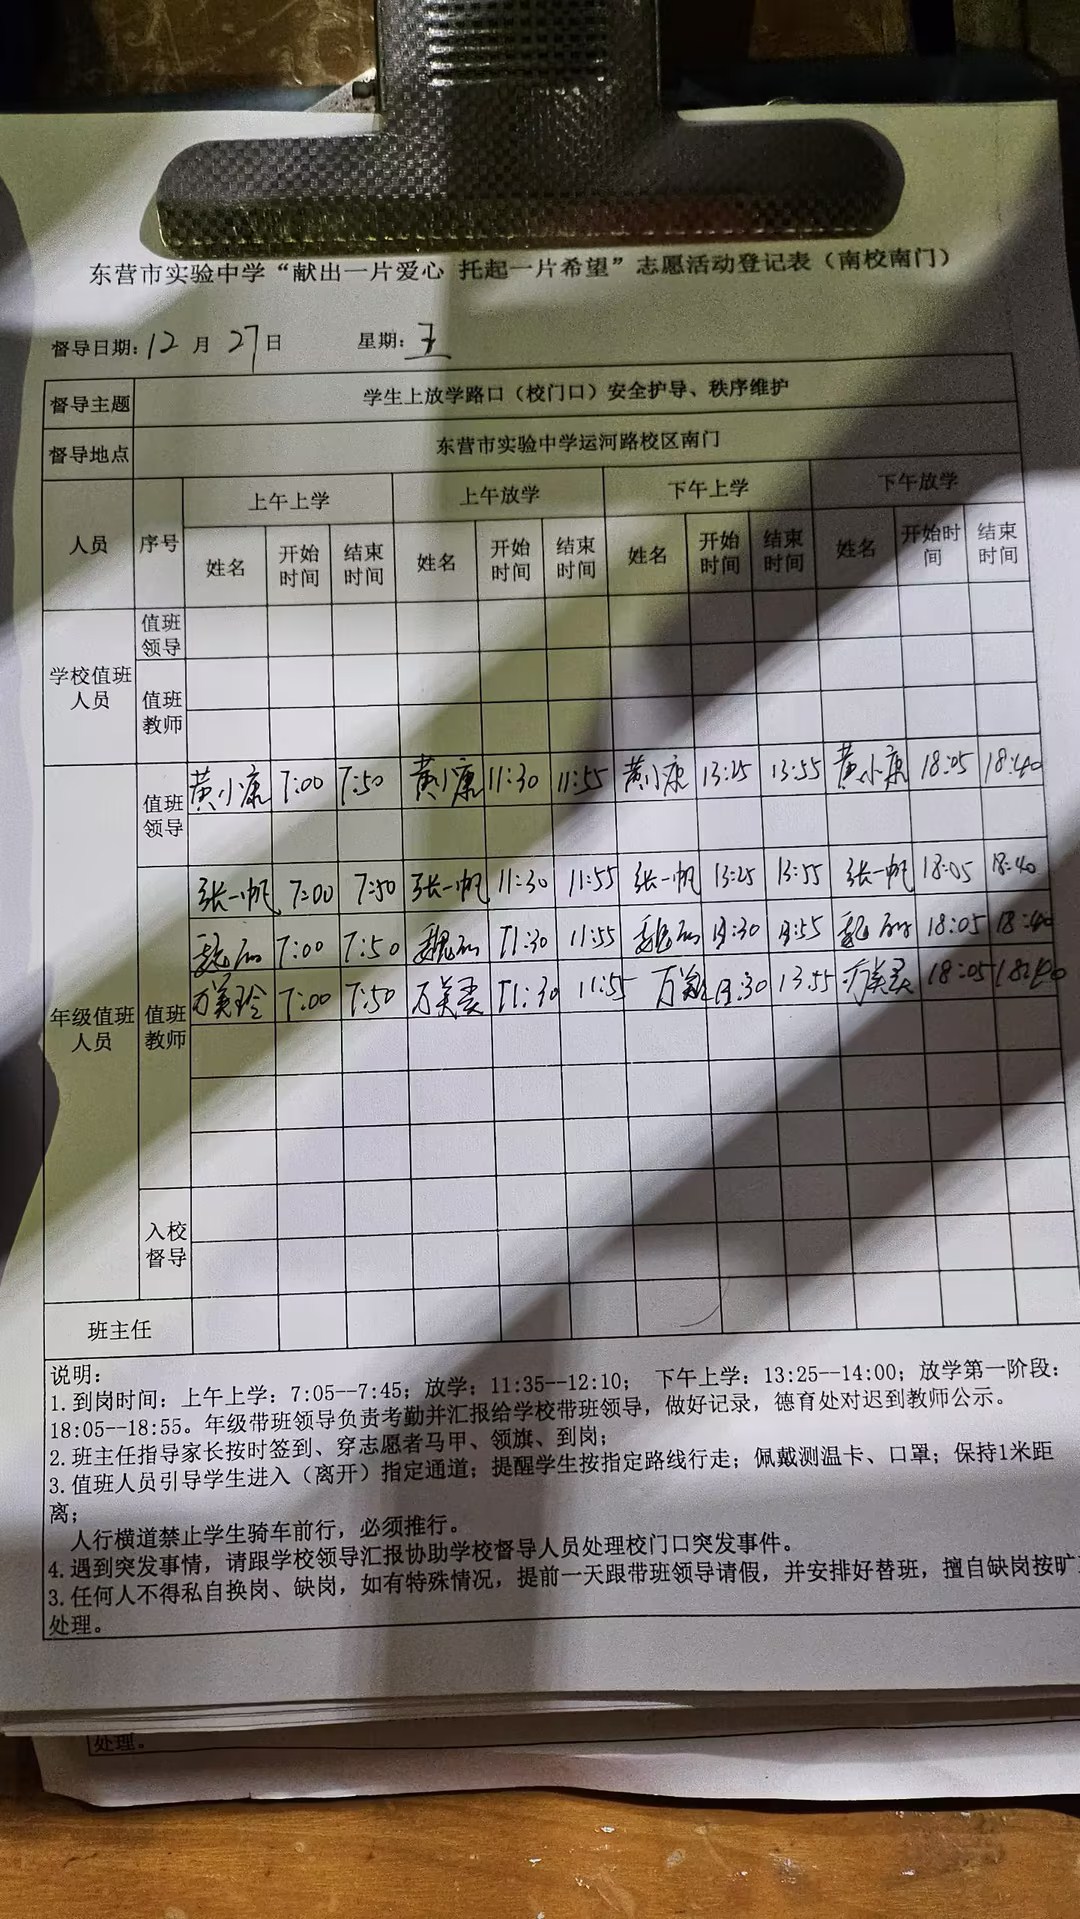 东营市实验中学“献出一片爱心 托起一片希望”志愿活动登记表（南校南门）
督导日期：12月27日 星期：五
督导主题 学生上放学路口（校门口）安全护导、秩序维护
督导地点 东营市实验中学运河路校区南门
人员 序号 上午上学 上午放学 下午上学 下午放学
姓名 开始时间 结束时间 姓名 开始时间 结束时间 姓名 开始时间 结束时间 姓名 开始时间 结束时间
学校值班人员 值班领导
值班教师
年级值班人员 值班领导 黄小康 7:00 7:50 黄小康 11:30 11:55 黄小康 13:25 13:55 黄小康 18:05 18:40
值班教师 张一帆 7:00 7:50 张一帆 11:30 11:55 张一帆 13:25 13:55 张一帆 18:05 18:40
魏 7:00 7:50 魏 11:30 11:55 魏 13:30 13:55 魏 18:05 18:40
万美玲 7:00 7:50 万美 11:30 11:55 万 13:30 13:55 万美 18:05 18:40
入校督导
班主任
说明：
1.到岗时间：上午上学：7:05--7:45；放学：11:35--12:10； 下午上学：13:25--14:00；放学第一阶段：
18:05--18:55。年级带班领导负责考勤并汇报给学校带班领导，做好记录，德育处对迟到教师公示。
2.班主任指导家长按时签到、穿志愿者马甲、领旗、到岗；
3.值班人员引导学生进入（离开）指定通道；提醒学生按指定路线行走；佩戴测温卡、口罩；保持1米距
离；
人行横道禁止学生骑车前行，必须推行。
4.遇到突发事情，请跟学校领导汇报协助学校督导人员处理校门口突发事件。
3.任何人不得私自换岗、缺岗，如有特殊情况，提前一天跟带班领导请假，并安排好替班，擅自缺岗按旷
处理。
处理。